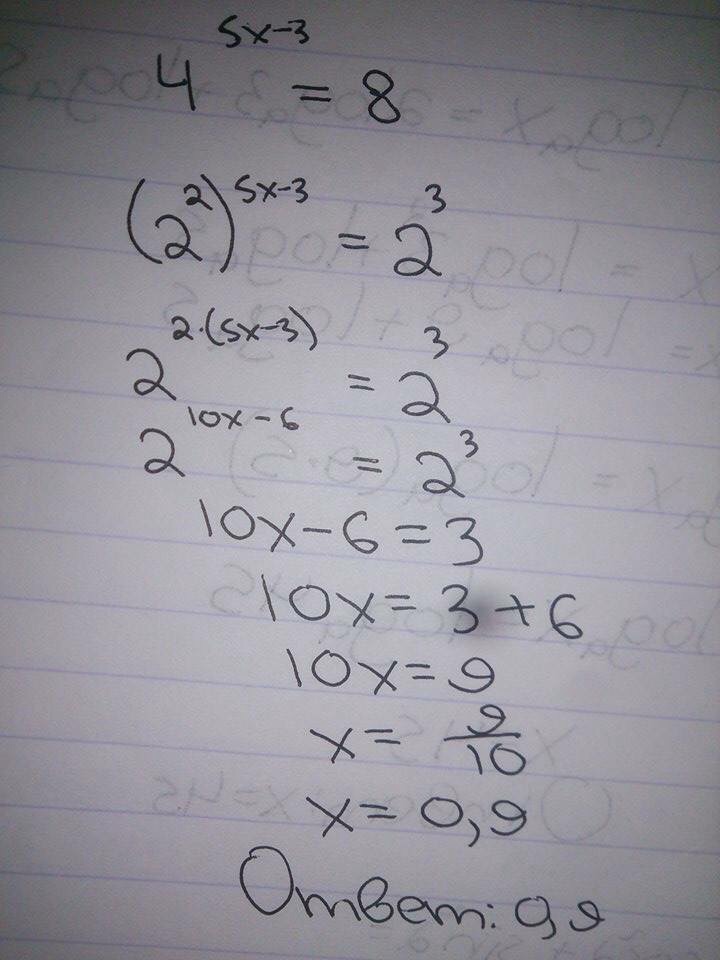 4^(5x-3) = 8
(2^2)^(5x-3) = 2^3
2^(2·(5x-3)) = 2^3
2^(10x-6) = 2^3
10x-6=3
10x=3+6
10x=9
x=9/10
x=0,9
Ответ: 0,9